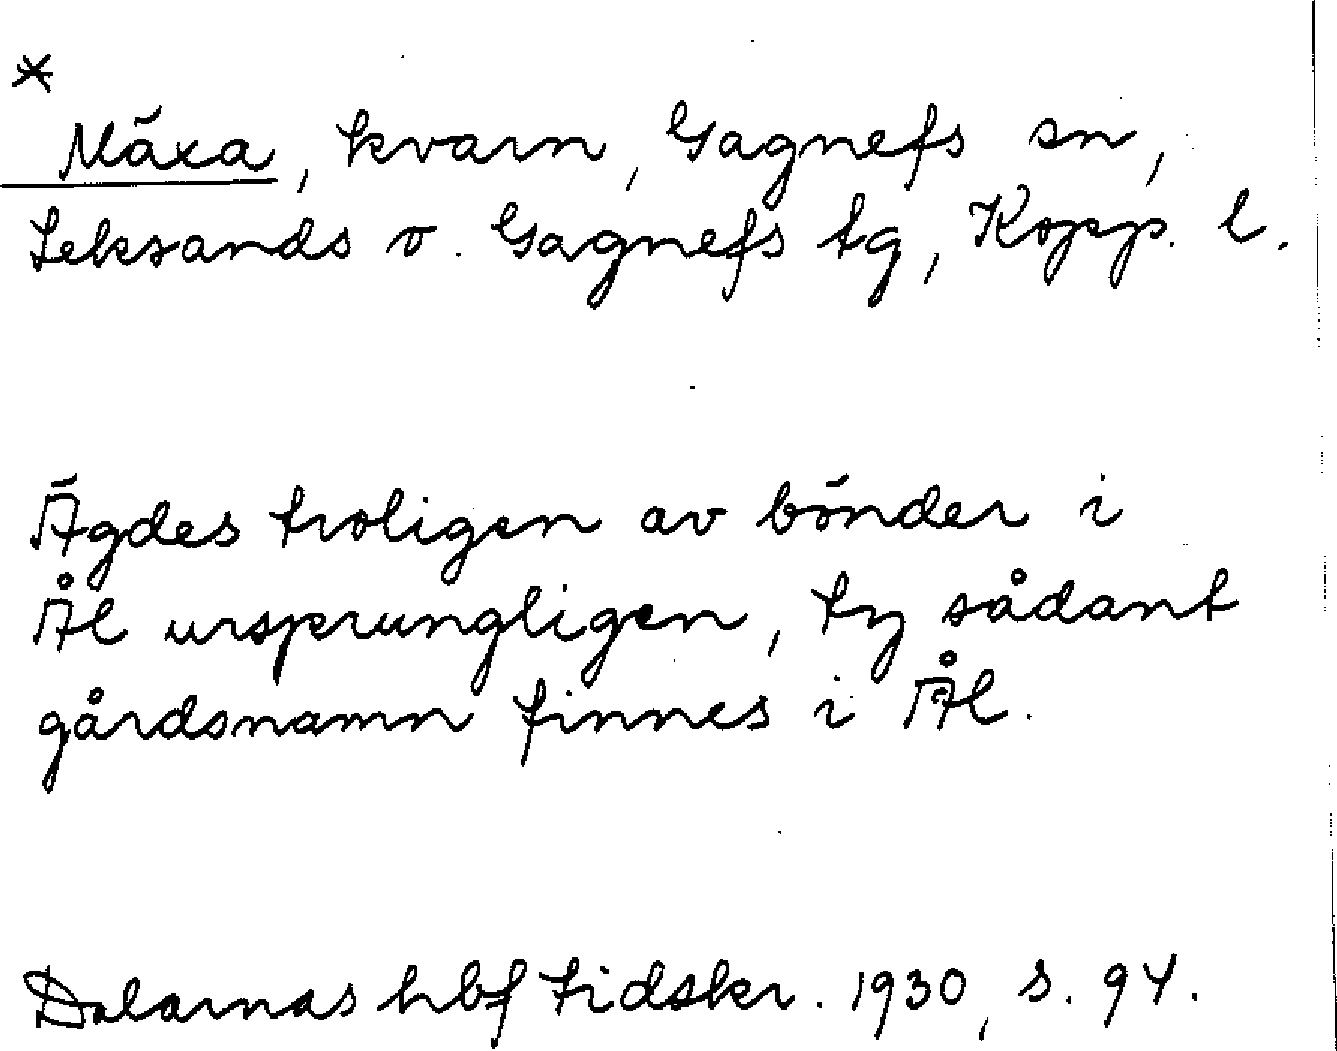 *
Mäxa, kvarn, Gagnefs sn,
Leksands o. Gagnefs tg, Kopp. l.
Ägdes troligen av bönder i
Ål ursprungligen, ty sådant
gårdsnamn finnes i Ål.
Dalarnas hbf tidskr. 1930, s. 94.